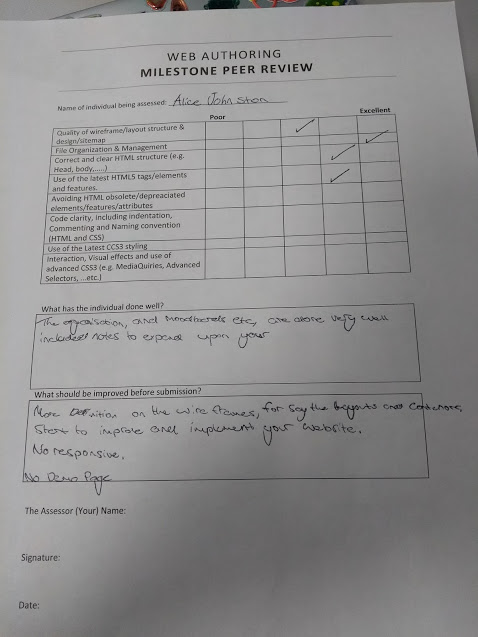 WEB AUTHORING
MILESTONE PEER REVIEW
Name of individual being assessed: Alice Johnston
Poor Excellent
Quality of wireframe/layout structure &
design/sitemap
File Organization & Management
Correct and clear HTML structure (e.g.
Head, body,.....)
Use of the latest HTML5 tags/elements
and features.
Avoiding HTML obsolete/depreaciated
elements/features/attributes
Code clarity, including indentation,
Commenting and Naming convention
(HTML and CSS)
Use of the Latest CCS3 styling
Interaction, Visual effects and use of
advanced CSS3 (e.g. MediaQuiries, Advanced
Selectors, ...etc.)
What has the individual done well?
The organisation, and moodboards etc, are done very well
included notes to expand upon your
What should be improved before submission?
More Definition on the wire frames, for say the layouts and containers,
Start to improve and implement your website.
No responsive.
No Demo Page
The Assessor (Your) Name:
Signature:
Date: